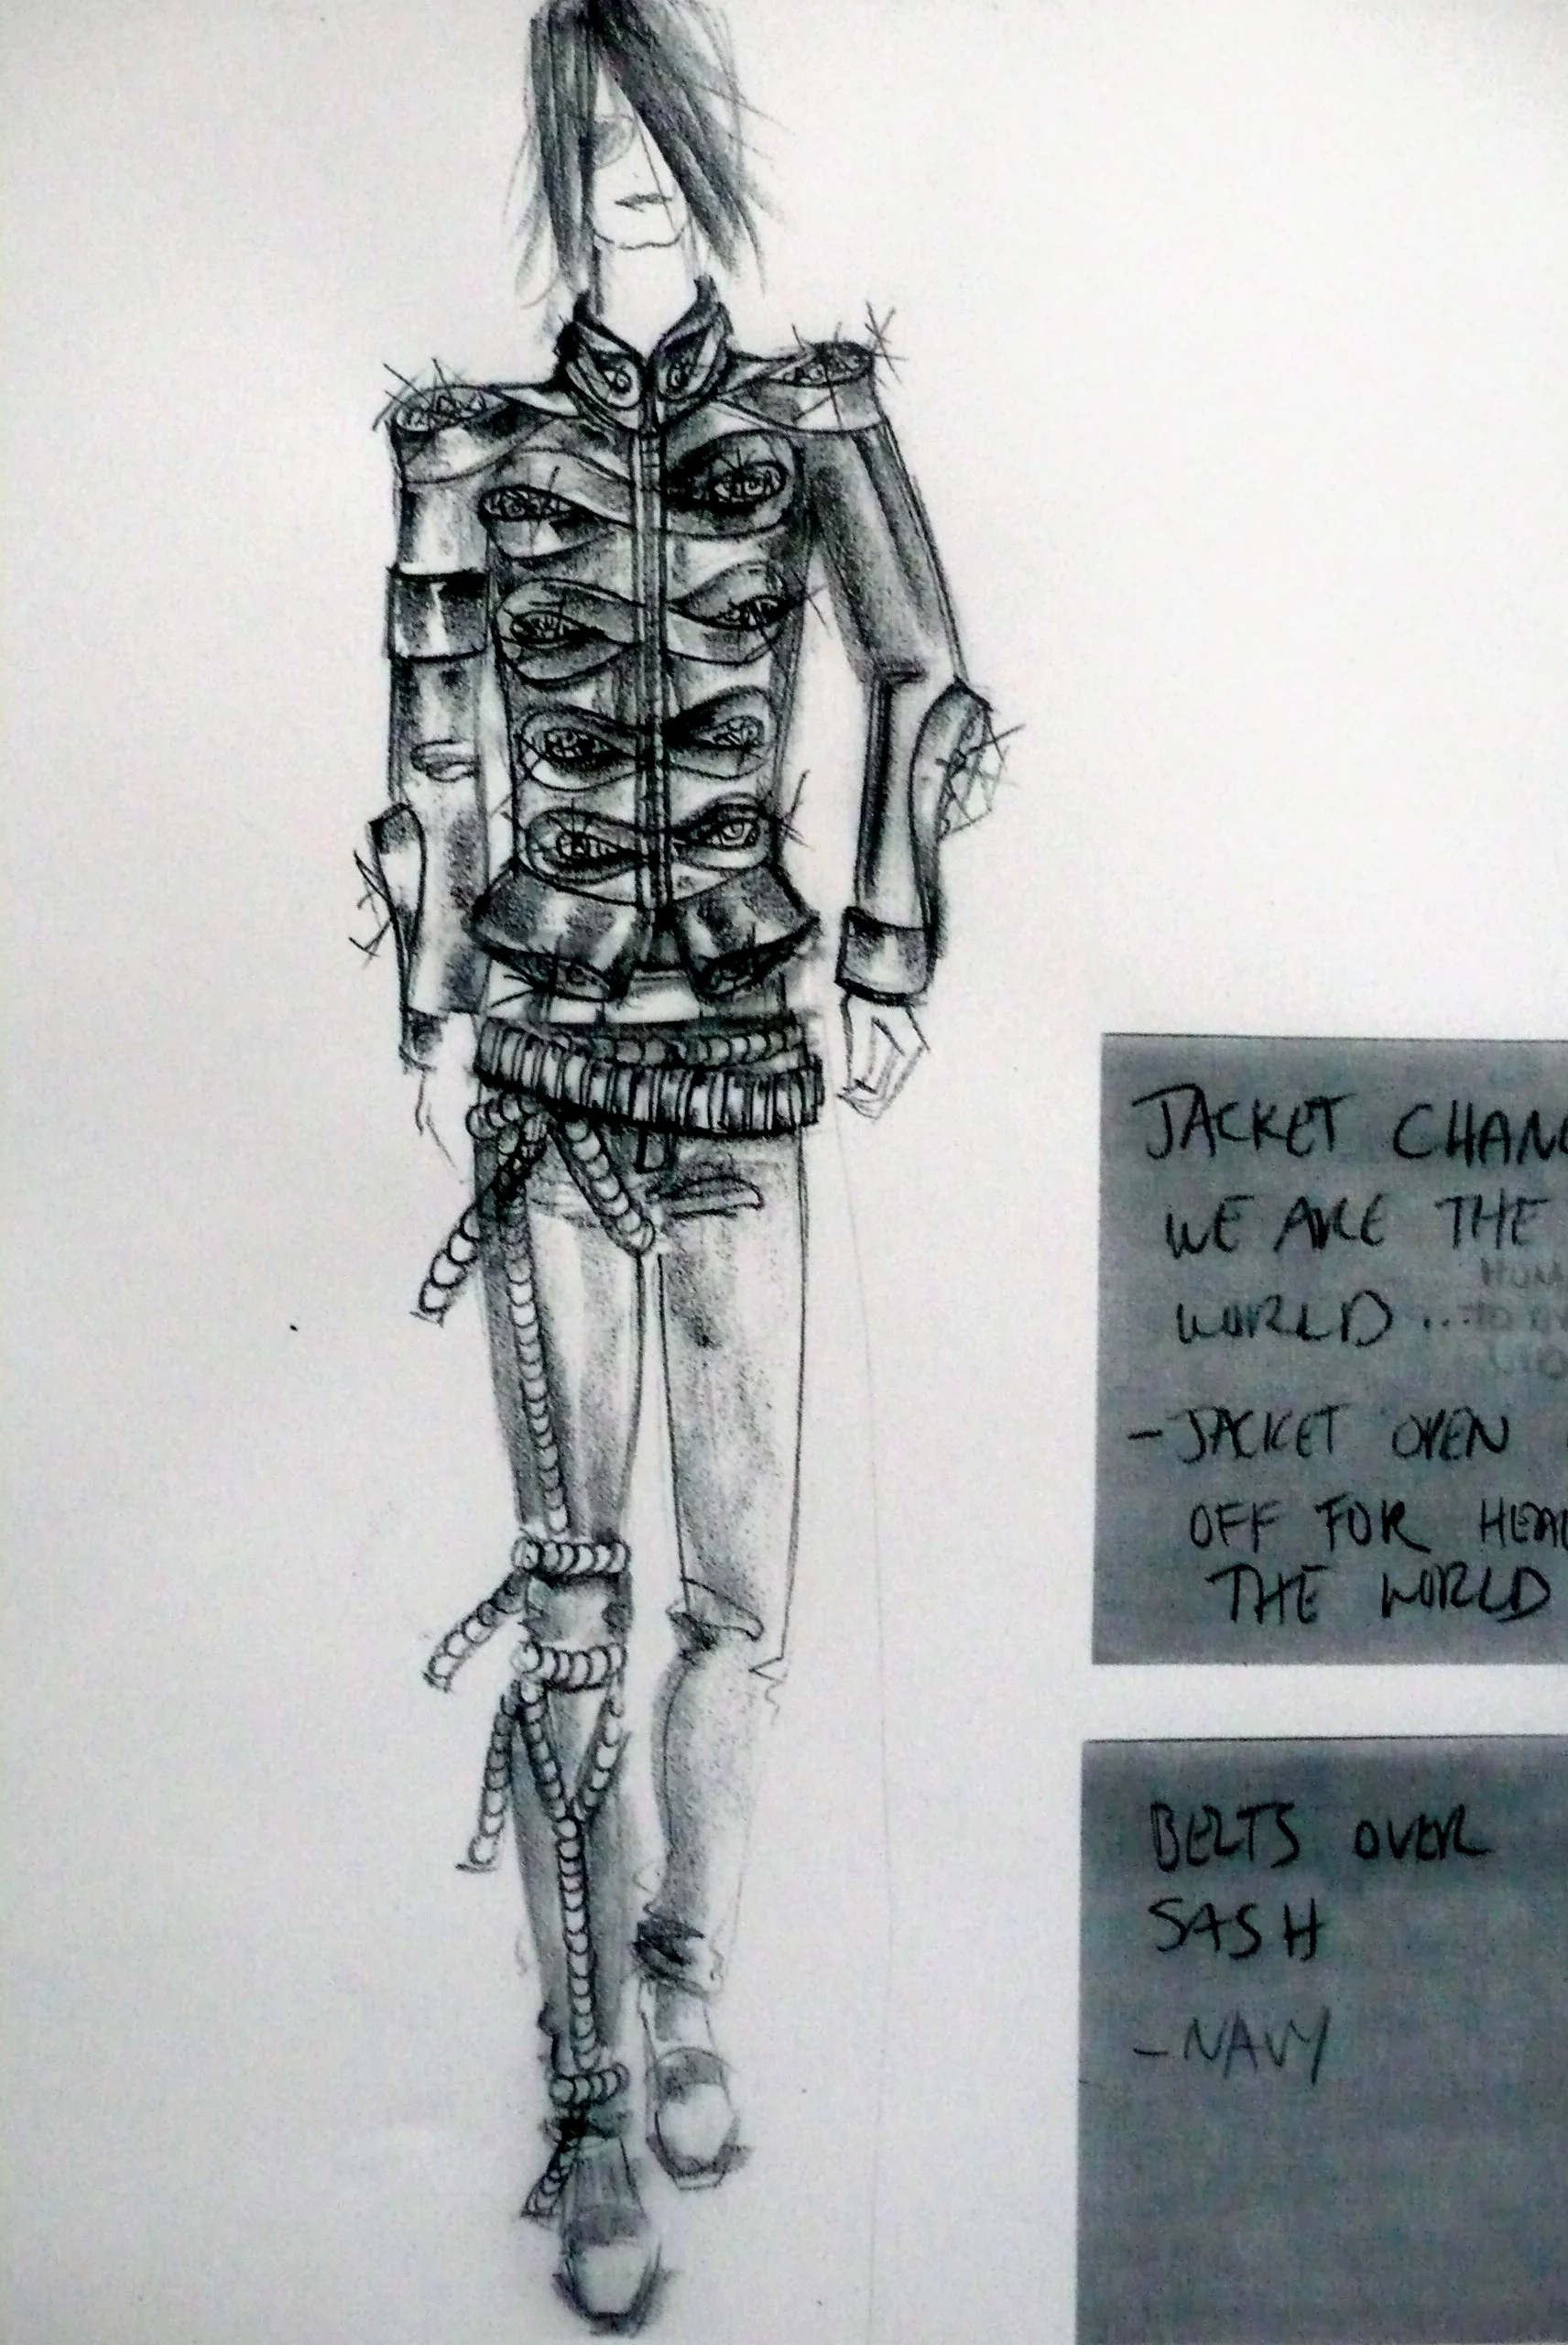 JACKET CHANG
WE ARE THE
WORLD ...
- JACKET OPEN
OFF FOR HEAL
THE WORLD
BELTS OVER
SASH
- NAVY